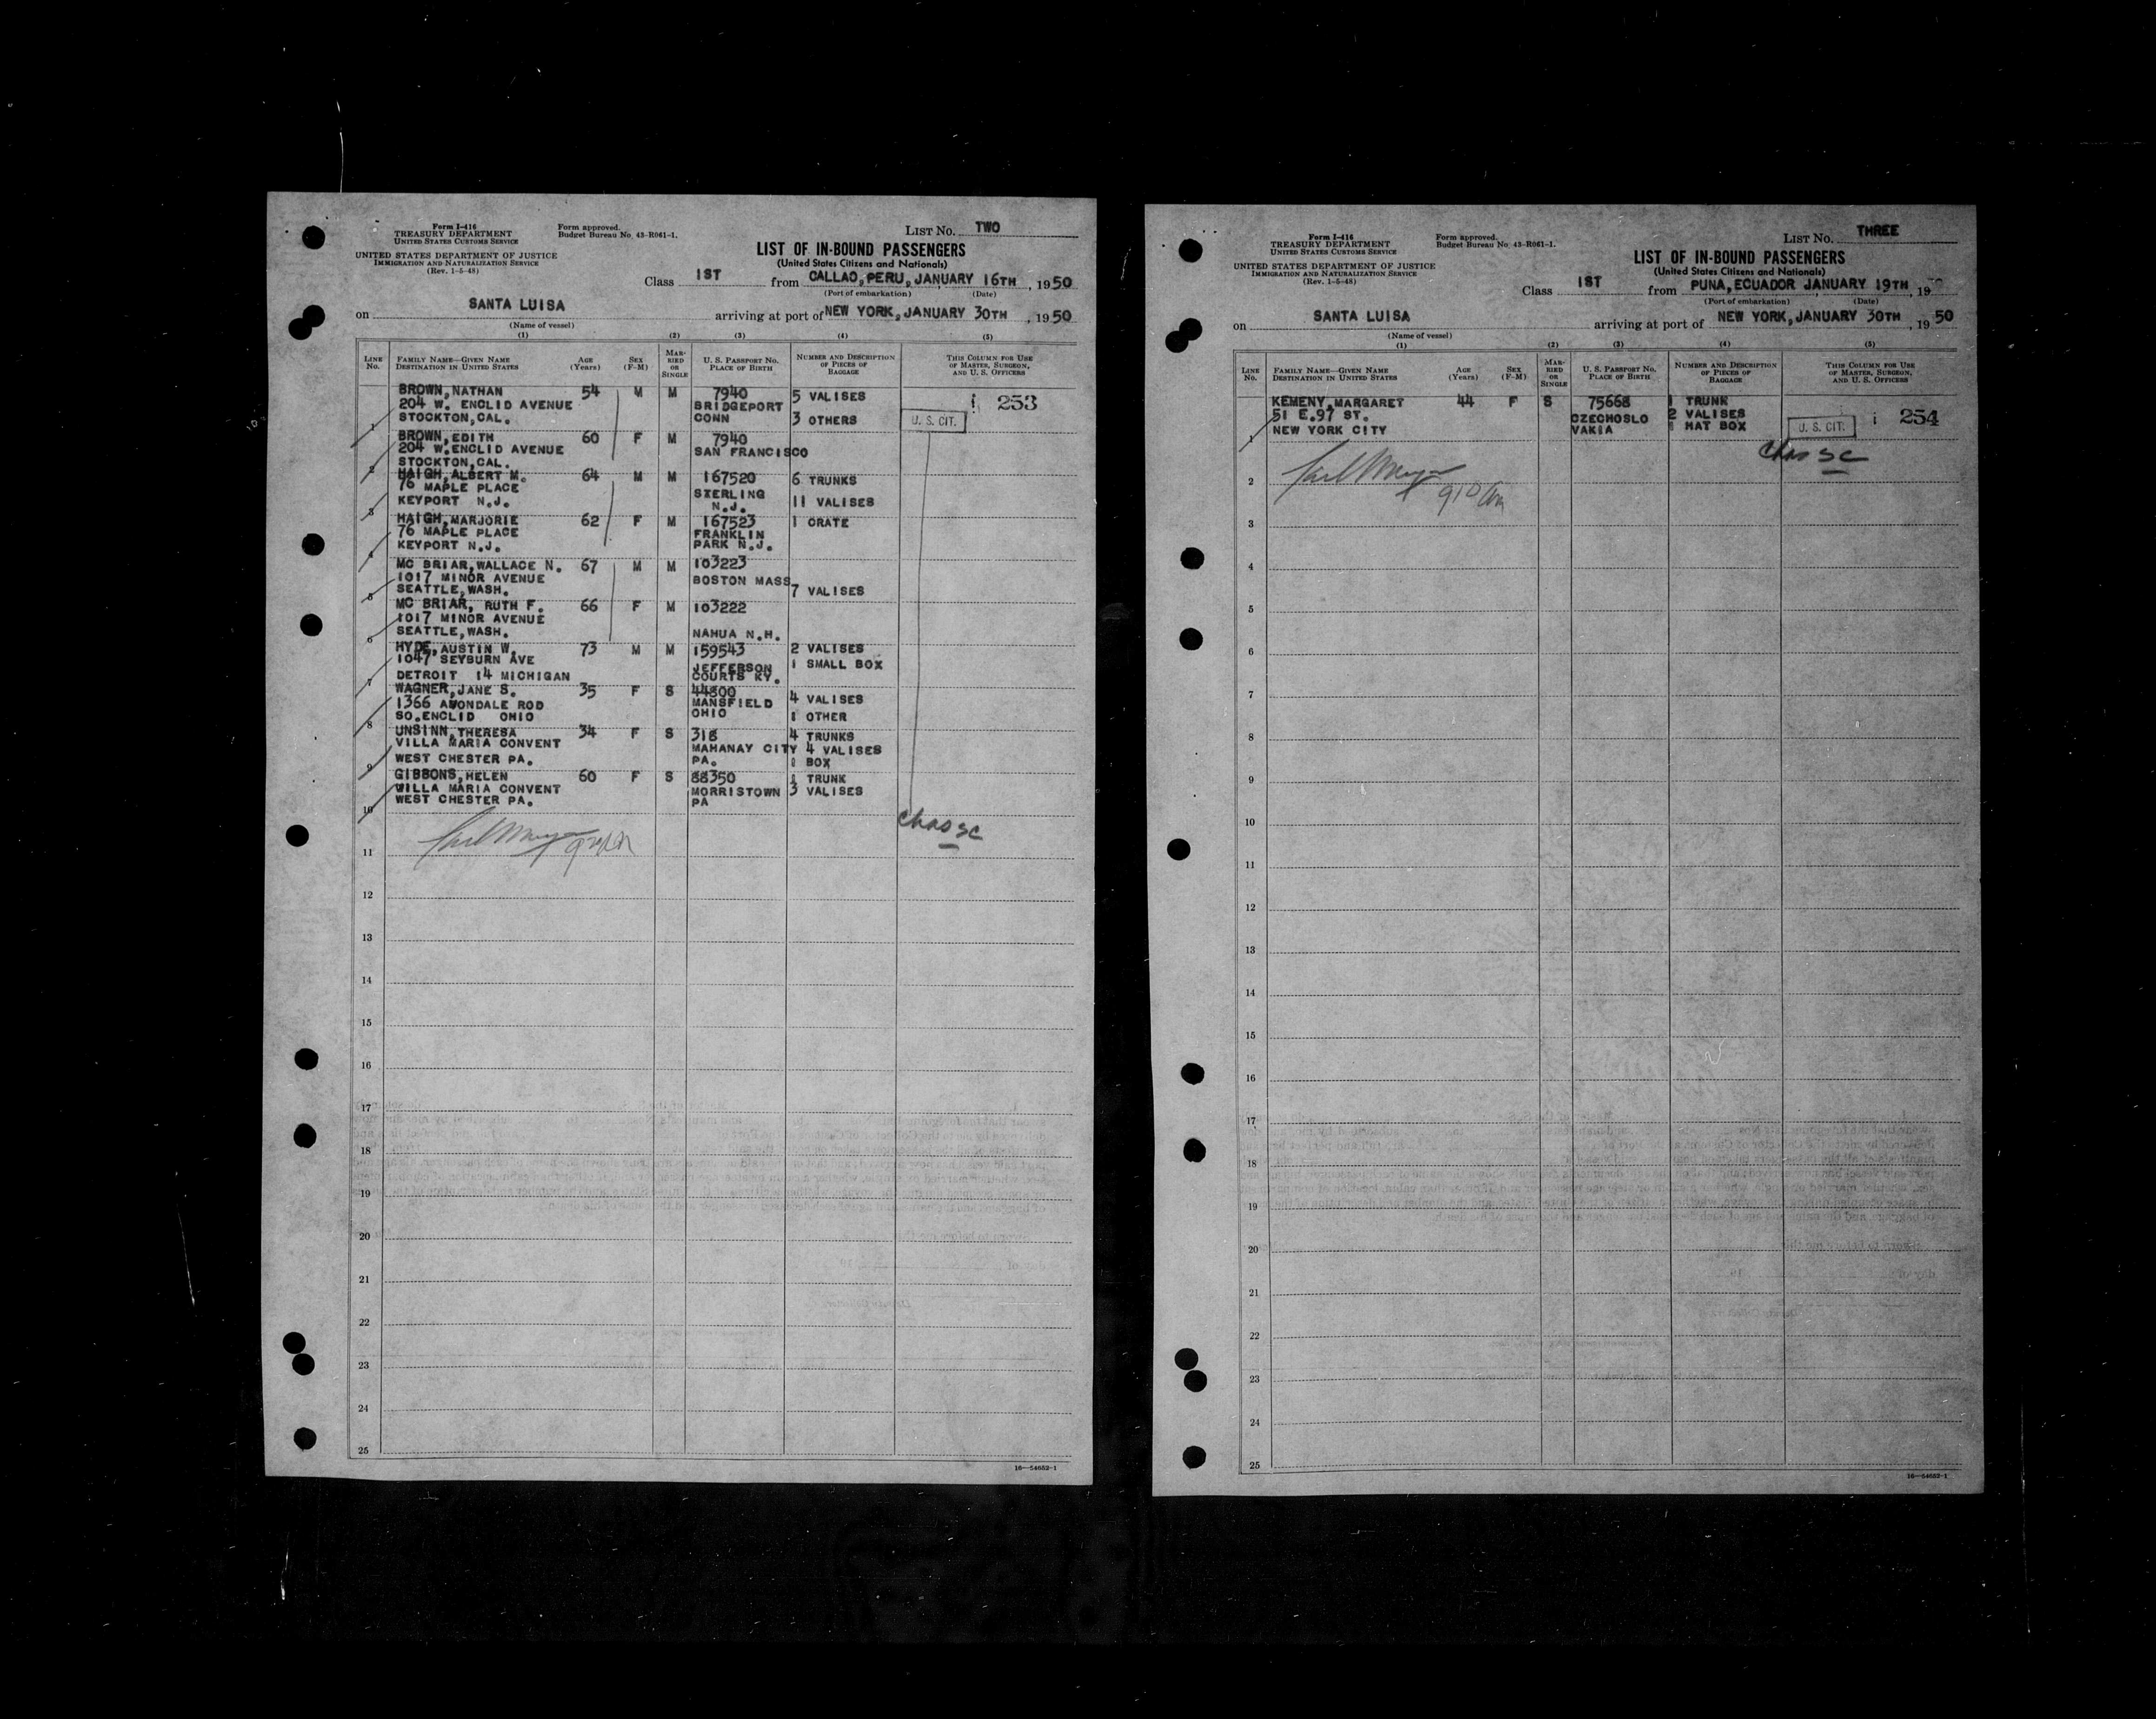 Form I-416
TREASURY DEPARTMENT
UNITED STATES CUSTOMS SERVICE
UNITED STATES DEPARTMENT OF JUSTICE
IMMIGRATION AND NATURALIZATION SERVICE
(Rev. 1-5-48)
Form approved.
Budget Bureau No. 43-R061-1.
LIST No. TWO
LIST OF IN-BOUND PASSENGERS
(United States Citizens and Nationals)
Class 1ST from CALLAO, PERU, JANUARY 16TH, 1950
(Port of embarkation) (Date)
on SANTA LUISA arriving at port of NEW YORK, JANUARY 30TH, 1950
(Name of vessel)
(1) (2) (3) (4) (5)
LINE No. FAMILY NAME—GIVEN NAME DESTINATION IN UNITED STATES AGE (Years) SEX (F-M) MARRIED OR SINGLE U. S. PASSPORT No. PLACE OF BIRTH NUMBER AND DESCRIPTION OF PIECES OF BAGGAGE THIS COLUMN FOR USE OF MASTER, SURGEON, AND U. S. OFFICERS
BROWN, NATHAN 54 M M 7940 5 VALISES 253
204 W. ENCLID AVENUE BRIDGEPORT
1 STOCKTON, CAL. CONN 3 OTHERS U. S. CIT.
BROWN, EDITH 60 F M 7940
204 W. ENCLID AVENUE SAN FRANCISCO
2 STOCKTON, CAL.
HAIGH, ALBERT M. 64 M M 167520 6 TRUNKS
76 MAPLE PLACE STERLING
3 KEYPORT N.J. N.J. 11 VALISES
HAIGH, MARJORIE 62 F M 167523 1 CRATE
76 MAPLE PLACE FRANKLIN
4 KEYPORT N.J. PARK N.J.
MC BRIAR, WALLACE N. 67 M M 103223
1017 MINOR AVENUE BOSTON MASS
5 SEATTLE, WASH. 7 VALISES
MC BRIAR, RUTH F. 66 F M 103222
1017 MINOR AVENUE
6 SEATTLE, WASH. NAHUA N.H.
HYDE, AUSTIN W. 73 M M 159543 2 VALISES
1047 SEYBURN AVE JEFFERSON 1 SMALL BOX
7 DETROIT 14 MICHIGAN COURTS KY.
WAGNER, JANE S. 35 F S 44800 4 VALISES
1366 AVONDALE ROD MANSFIELD
8 SO. ENCLID OHIO OHIO 1 OTHER
UNSINN, THERESA 34 F S 318 4 TRUNKS
VILLA MARIA CONVENT MAHANAY CITY 4 VALISES
9 WEST CHESTER PA. PA. 1 BOX
GIBBONS, HELEN 60 F S 88350 1 TRUNK
VILLA MARIA CONVENT MORRISTOWN 3 VALISES
10 WEST CHESTER PA. PA
11
12
13
14
15
16
17
18
19
20
21
22
23
24
25
16—54652-1
Form I-416
TREASURY DEPARTMENT
UNITED STATES CUSTOMS SERVICE
UNITED STATES DEPARTMENT OF JUSTICE
IMMIGRATION AND NATURALIZATION SERVICE
(Rev. 1-5-48)
Form approved.
Budget Bureau No. 43-R061-1.
LIST No. THREE
LIST OF IN-BOUND PASSENGERS
(United States Citizens and Nationals)
Class 1ST from PUNA, ECUADOR JANUARY 19TH, 19
(Port of embarkation) (Date)
on SANTA LUISA arriving at port of NEW YORK, JANUARY 30TH, 1950
(Name of vessel)
(1) (2) (3) (4) (5)
LINE No. FAMILY NAME—GIVEN NAME DESTINATION IN UNITED STATES AGE (Years) SEX (F-M) MARRIED OR SINGLE U. S. PASSPORT No. PLACE OF BIRTH NUMBER AND DESCRIPTION OF PIECES OF BAGGAGE THIS COLUMN FOR USE OF MASTER, SURGEON, AND U. S. OFFICERS
KEMENY, MARGARET 44 F S 75668 1 TRUNK
51 E. 97 ST. CZECHOSLO 2 VALISES 254
1 NEW YORK CITY VAKIA 1 HAT BOX U. S. CIT.
2
3
4
5
6
7
8
9
10
11
12
13
14
15
16
17
18
19
20
21
22
23
24
25
16—54652-1